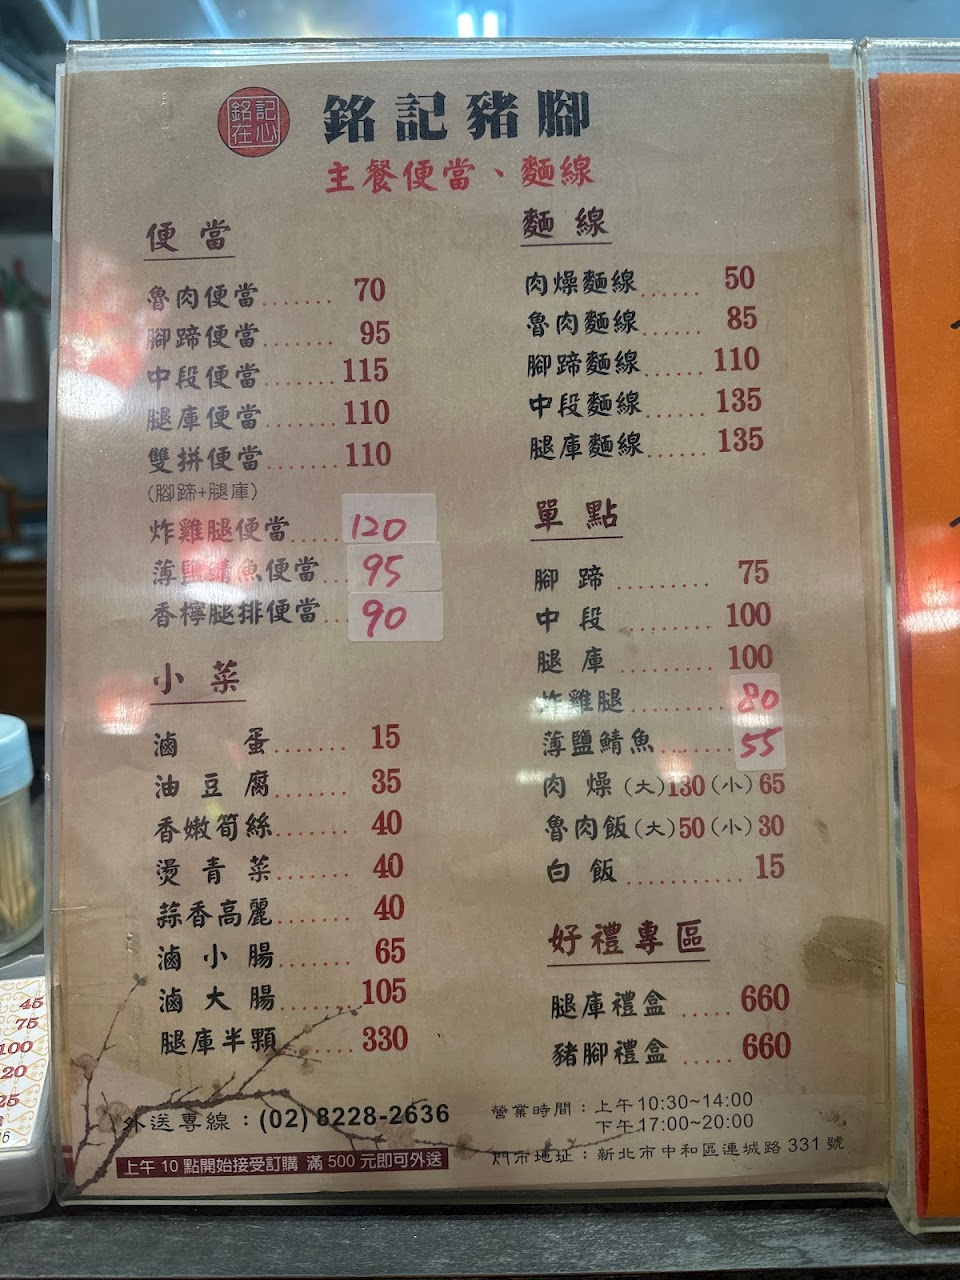 銘記
在心
銘記豬腳
主餐便當、麵線
便當
魯肉便當....... 70
腳蹄便當....... 95
中段便當.......115
腿庫便當.......110
雙拼便當.......110
(腳蹄+腿庫)
炸雞腿便當.....120
薄鹽鯖魚便當...95
香檸腿排便當...90
小菜
滷蛋....... 15
油豆腐....... 35
香嫩筍絲....... 40
燙青菜....... 40
蒜香高麗....... 40
滷小腸....... 65
滷大腸.......105
腿庫半顆.......330
麵線
肉燥麵線...... 50
魯肉麵線...... 85
腳蹄麵線......110
中段麵線......135
腿庫麵線......135
單點
腳蹄........ 75
中段........ 100
腿庫........ 100
炸雞腿........ 80
薄鹽鯖魚.......55
肉燥(大)130(小)65
魯肉飯(大)50(小)30
白飯........... 15
好禮專區
腿庫禮盒 ..... 660
豬腳禮盒 ..... 660
外送專線：(02) 8228-2636
上午 10 點開始接受訂購 滿 500 元即可外送
營業時間：上午 10:30~14:00
下午 17:00~20:00
門市地址：新北市中和區連城路 331 號
45
75
100
20
25